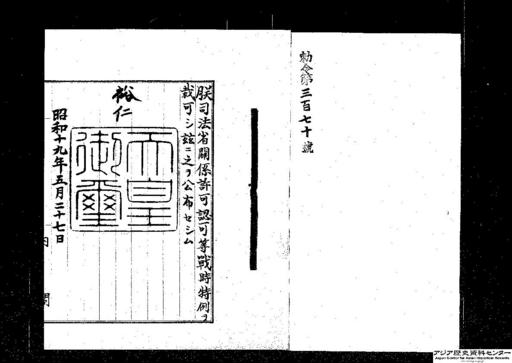 勅令第三百七十號
朕司法省關係許可認可等戰時特例ヲ
裁可シ茲ニ之ヲ公布セシム
裕仁
天皇御璽
昭和十九年五月二十七日
内閣
アジア歴史資料センター
Japan Center for Asian Historical Records